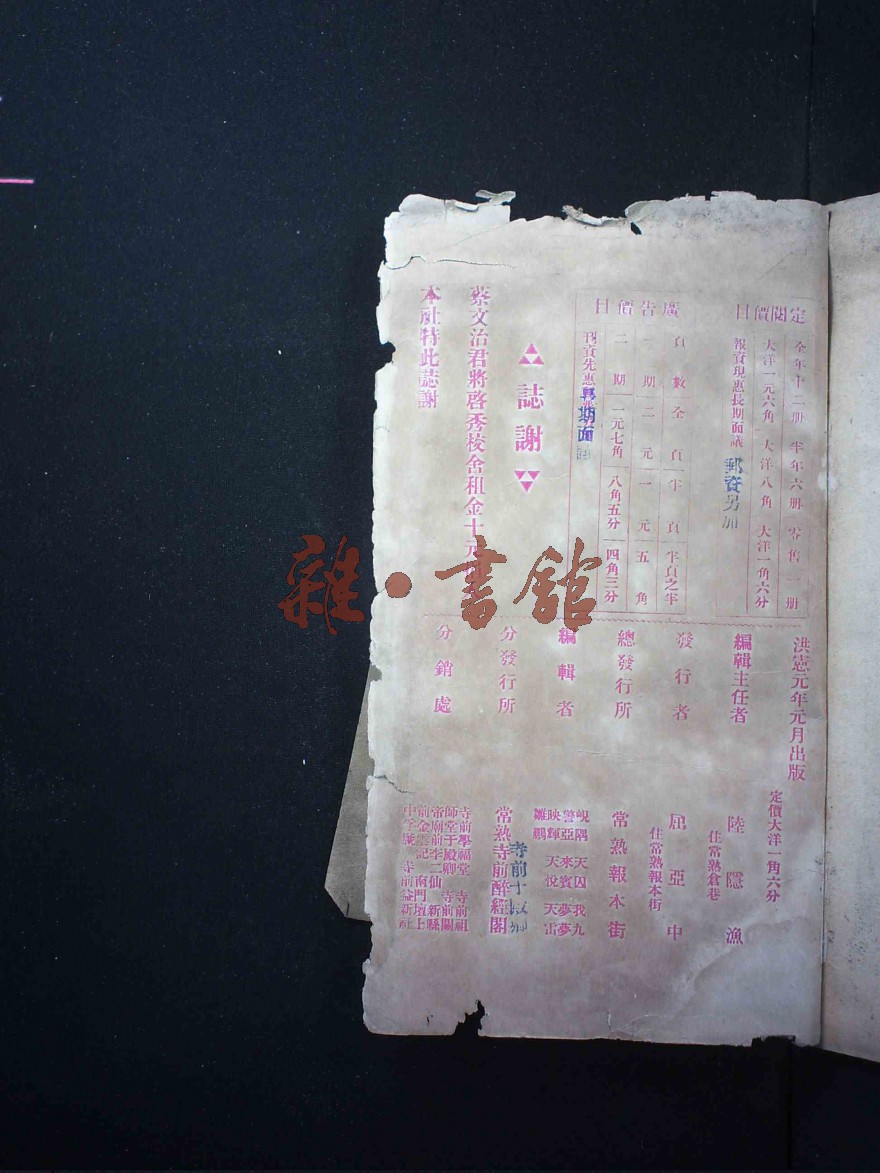 定閱價目
全年十二册 半年六册 零售一册
大洋一元六角 大洋八角 大洋一角六分
報資現惠長期面議 郵資另加
廣告價目
頁數 全頁 半頁 半頁之半
一期 二元 一元 五角
二期 一元七角 八角五分 四角三分
刊資先惠 期面
誌謝
蔡文治君將啓秀校舍租金十元
本社特此誌謝
洪憲元年元月出版
定價大洋一角六分
編輯主任者 陸隱漁
住常熟倉巷
發行者 屈亞中
住常熟報本街
總發行所 常熟報本街
編輯者
峴隅 天囚 我九
警亞 來賓 夢夢
映輝 天悅 天雷
雛鵬
分發行所
寺前
常熟寺前醉經閣
分銷處
寺前學福堂 寺前祖
師堂于殿卿 寺前關
帝廟前李二仙 新縣
前金 記 南門壇上
寺前益新社
雜·書館